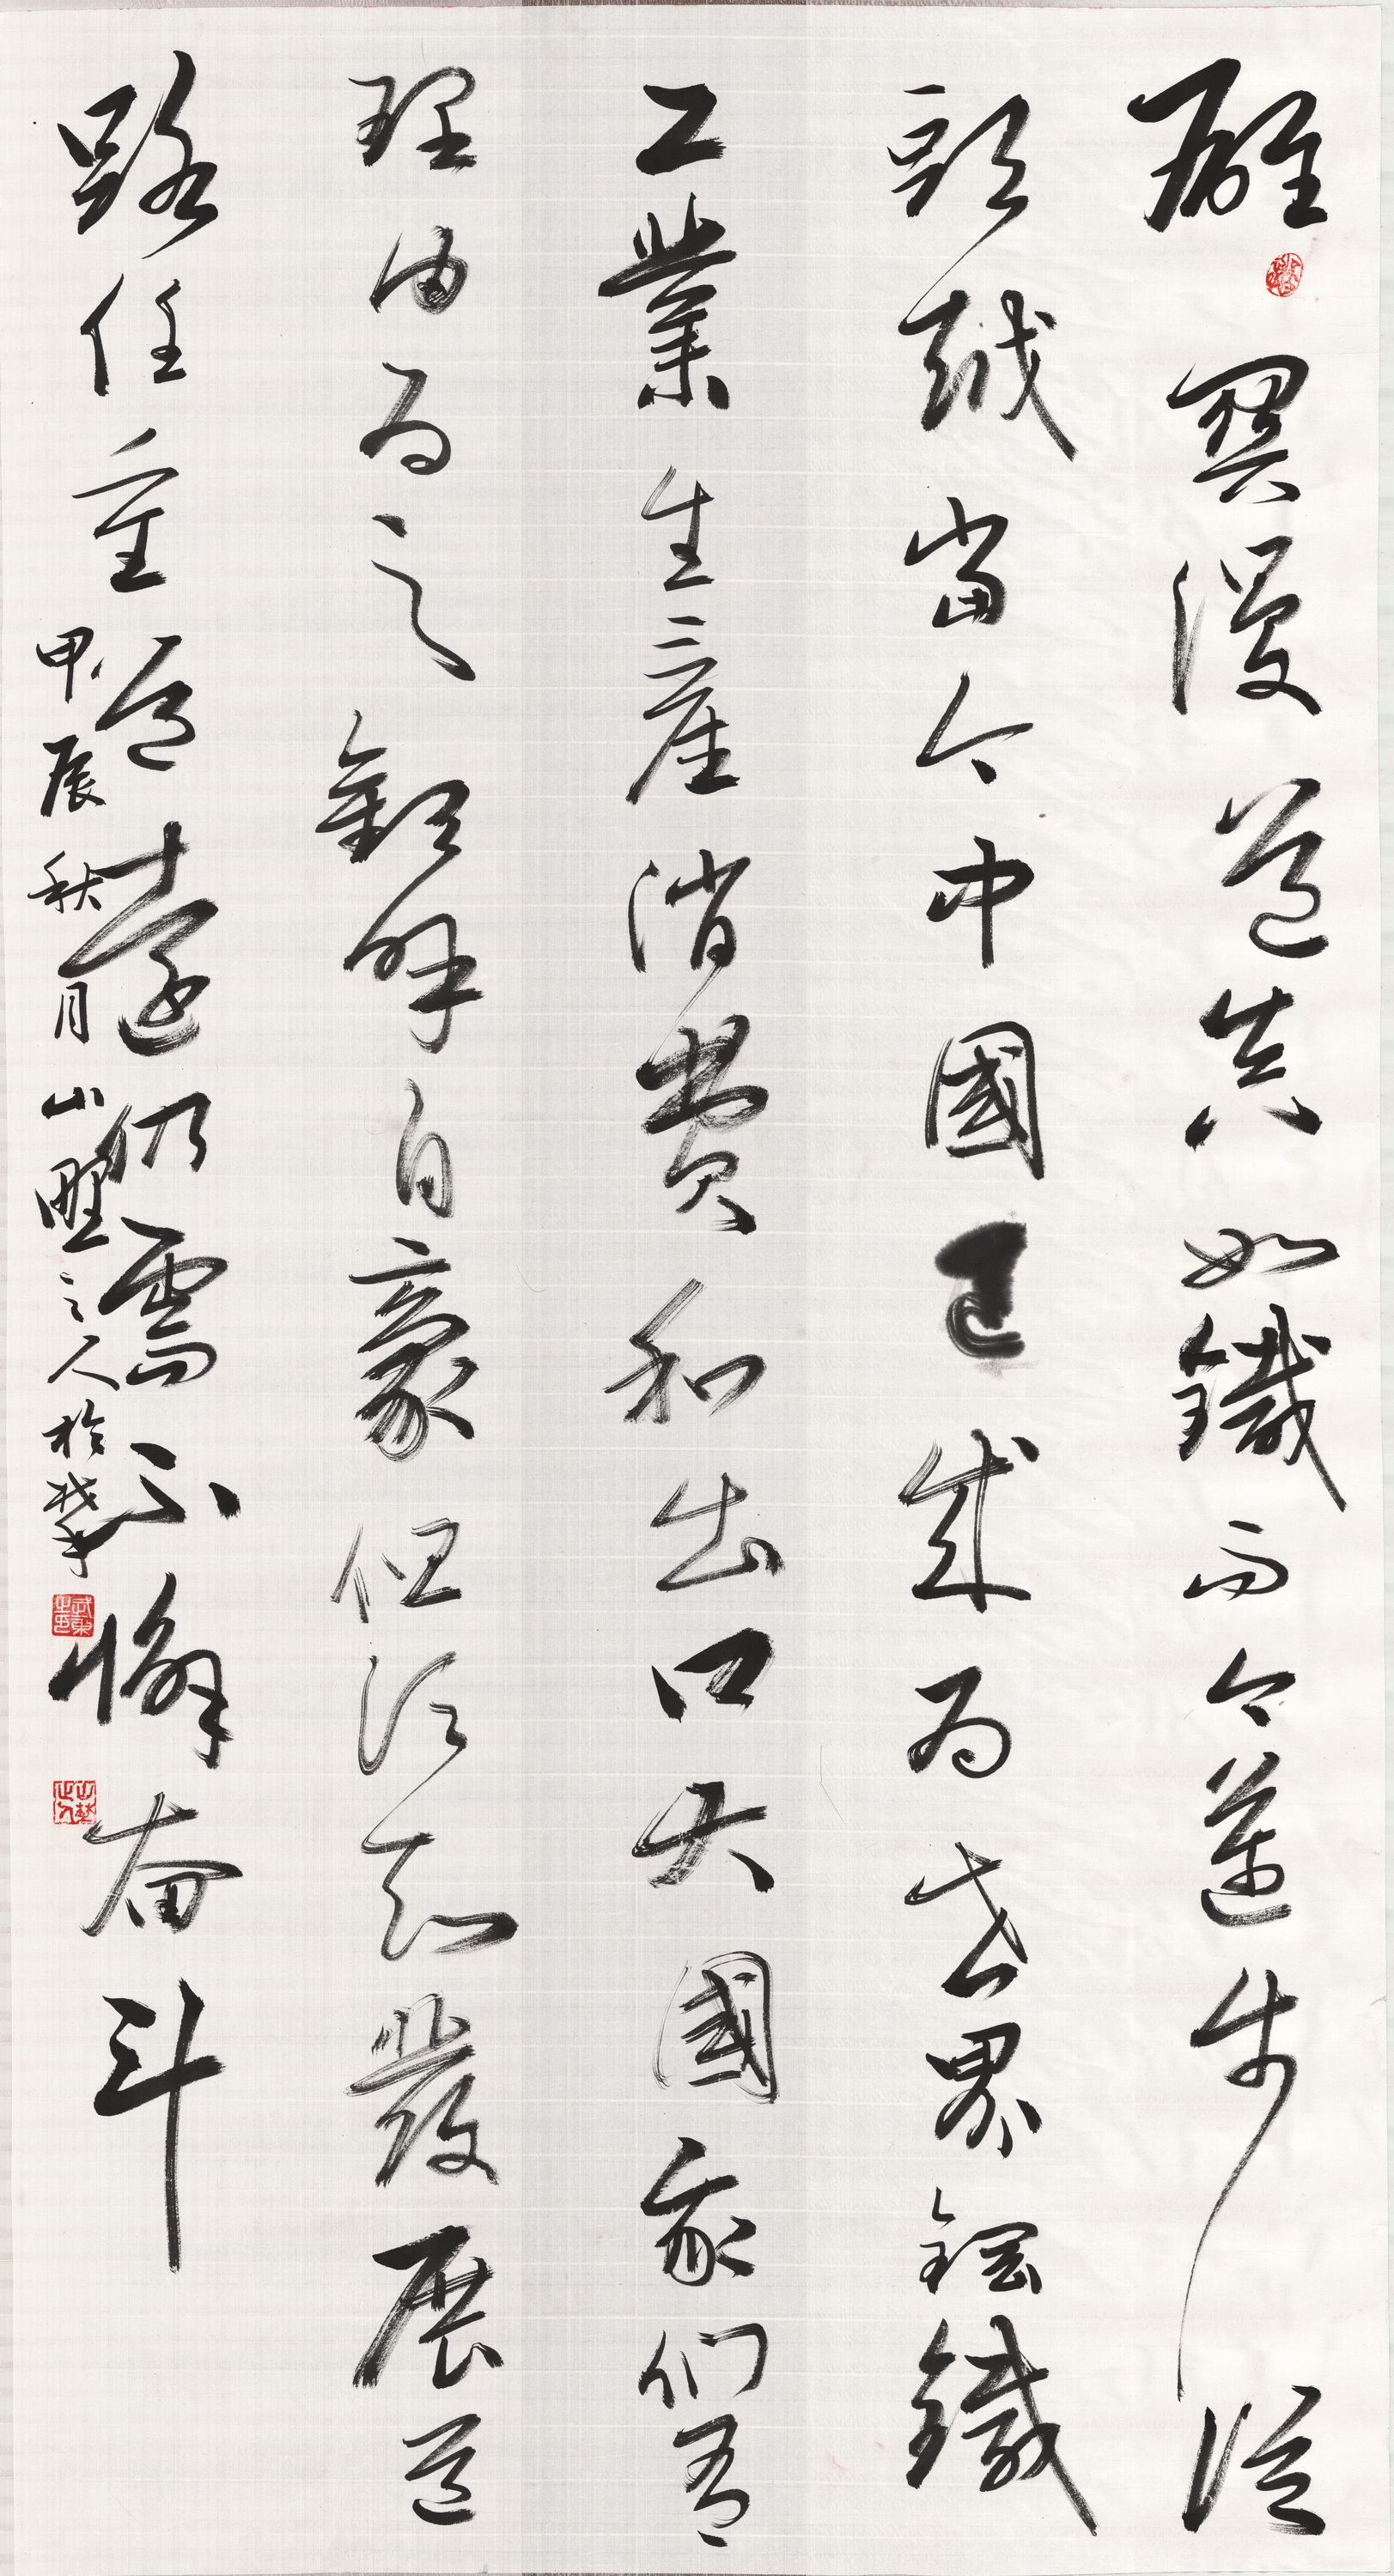 雄關漫道真如鐵而今邁步從
頭越當今中國已成為世界鋼鐵
工業生產消費和出口大國我們有
理由為之歡呼自豪但須知發展道
路任重道遠仍需不懈奮斗
甲辰秋月山野之人於